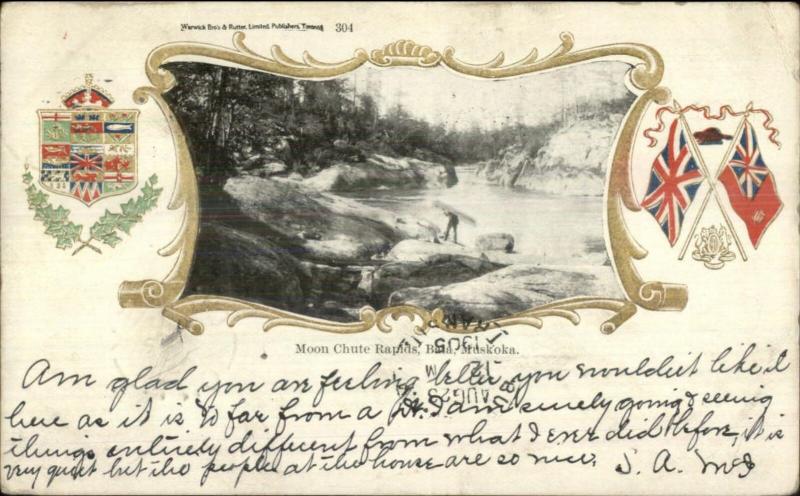 Warwick Bro's & Rutter, Limited, Publishers, Toronto 304
Moon Chute Rapids, Bala, Muskoka.
AUG 23
12 M
1905
Am glad you are feeling better, you wouldn't like it
here as it is so far from a I am surely going & seeing
things entirely different from what I ever did before, it is
very quiet but the people at the house are so nice. S. A. McI